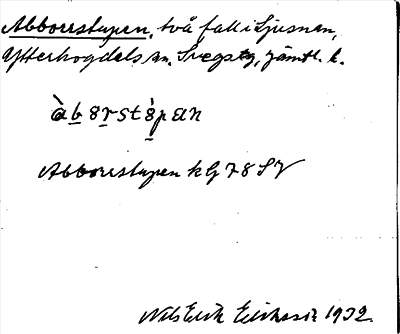 Abborrstupen, två fall i Ljusnan,
Ytterhogdals sn, Svegs tg, Jämtl. l.
àbərstə̀pan
Abborrstupen kG 78 SV
Nils Erik Eriksson 1932.